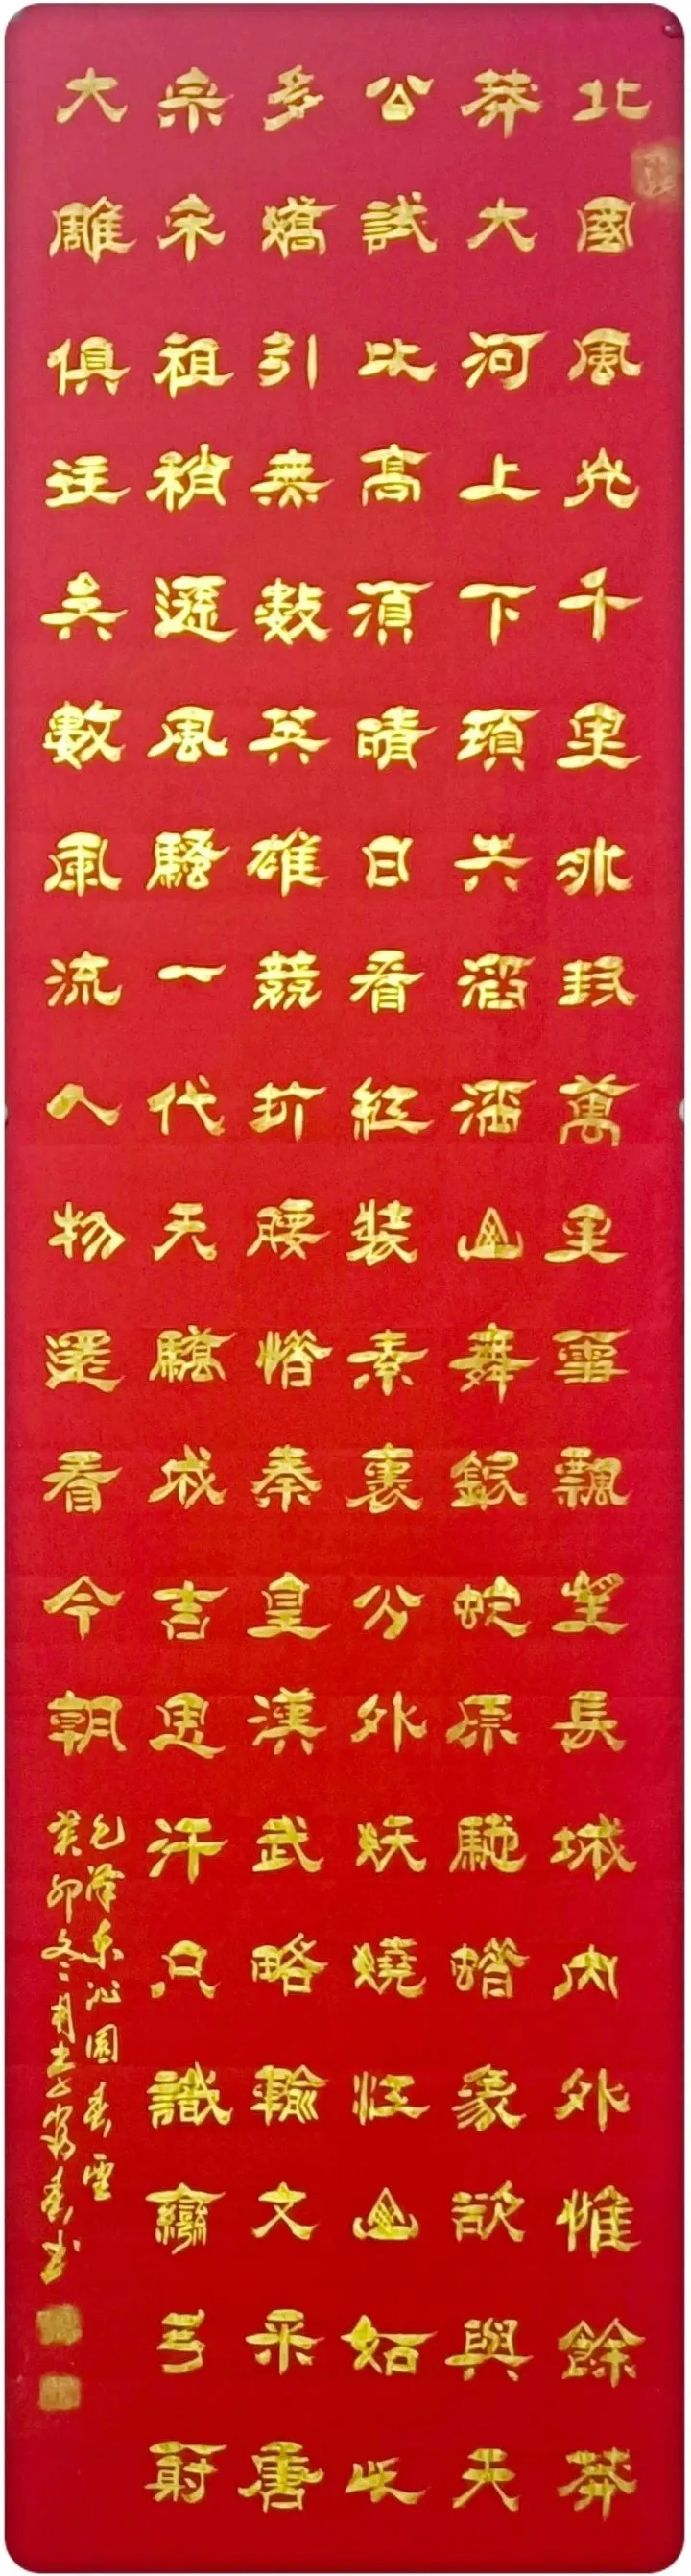 北國風光千里冰封萬里雪飄望長城內外惟餘莽
莽大河上下頓失滔滔山舞銀蛇原馳蜡象欲與天
公試比高須晴日看紅裝素裹分外妖嬈江山如此
多嬌引無數英雄競折腰惜秦皇漢武略輸文采唐
宗宋祖稍遜風騷一代天驕成吉思汗只識彎弓射
大雕俱往矣數風流人物還看今朝
毛泽东沁園春雪
癸卯冬月